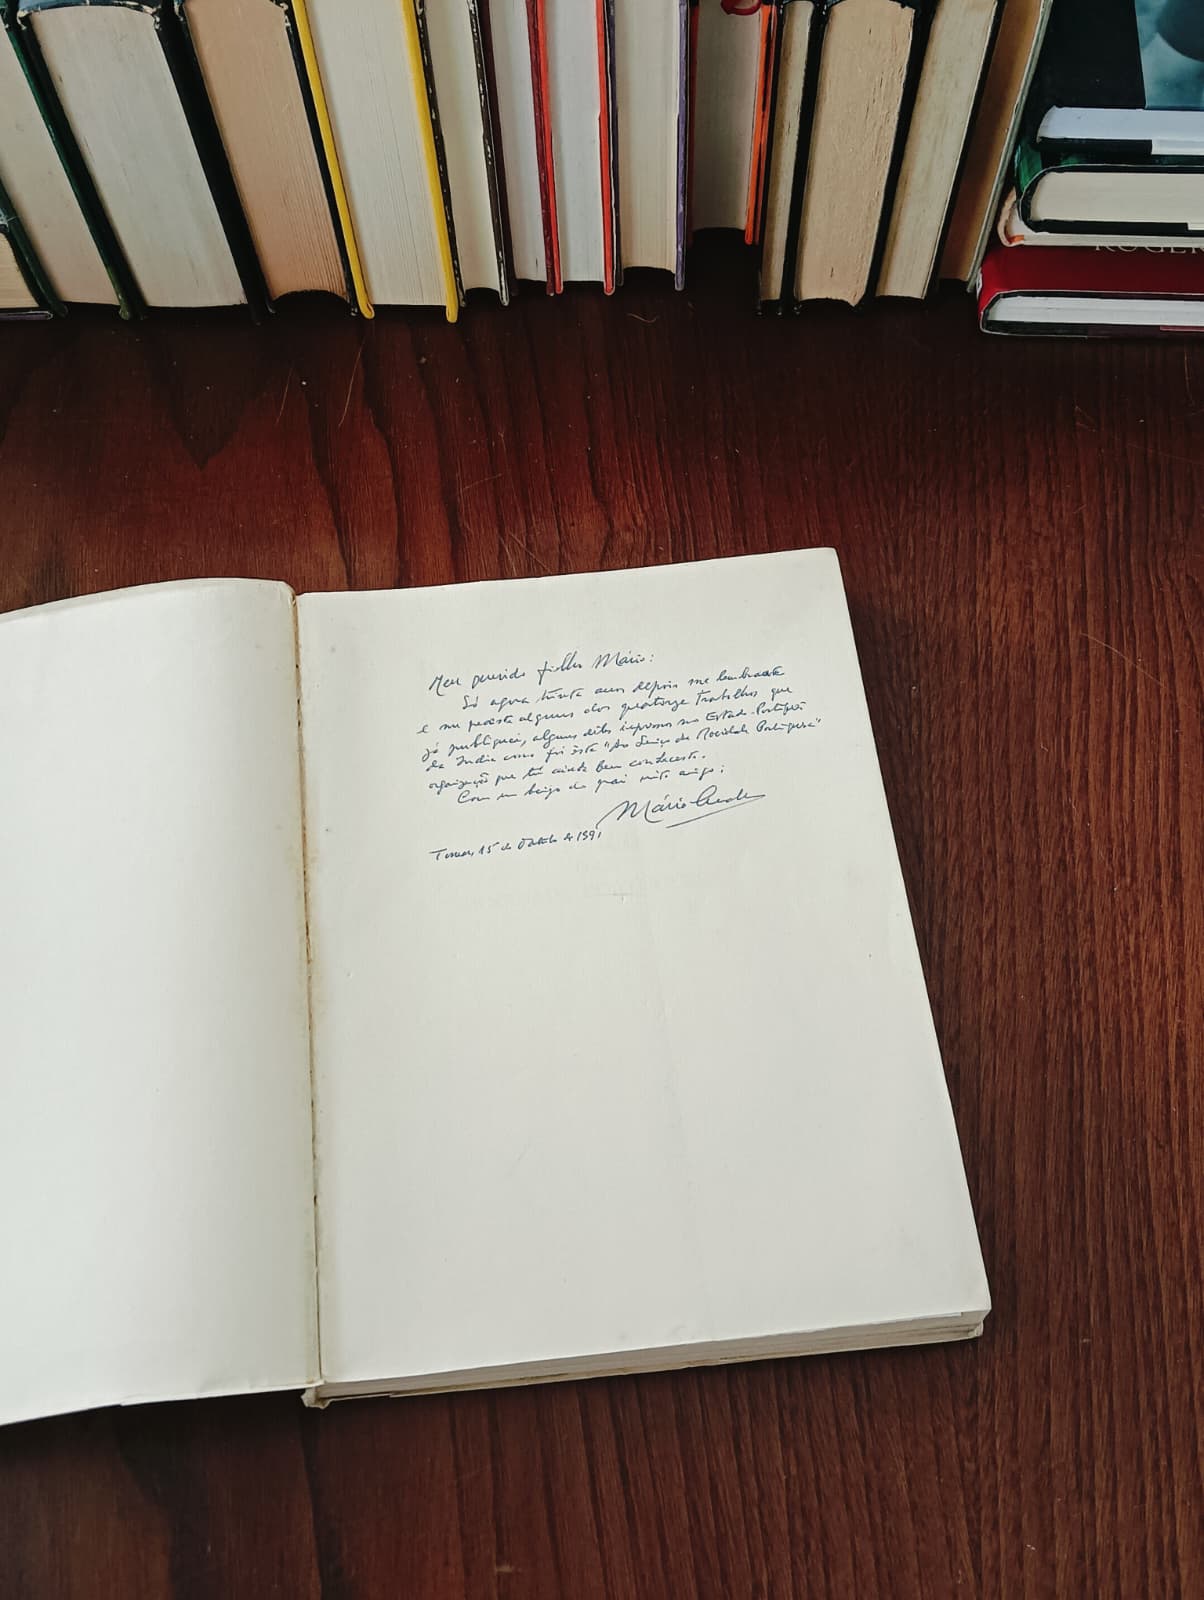 ROGER
Meu querido filho Mário:
Só agora trinta anos depois me lembraste
e me pediste alguns dos quatorze trabalhos que
já publiquei, alguns deles impressos no Estado Português
da India como foi êste "Ao Serviço da Mocidade Portuguesa"
organização que tu ainda bem conheceste.
Com um beijo do pai muito amigo:
Mário
Tomar, 15 de Outubro de 1991